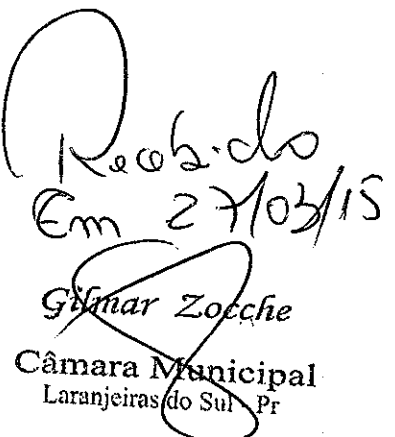 Recebido
Em 27/03/15
Gilmar Zocche
Câmara Municipal
Laranjeiras do Sul - Pr